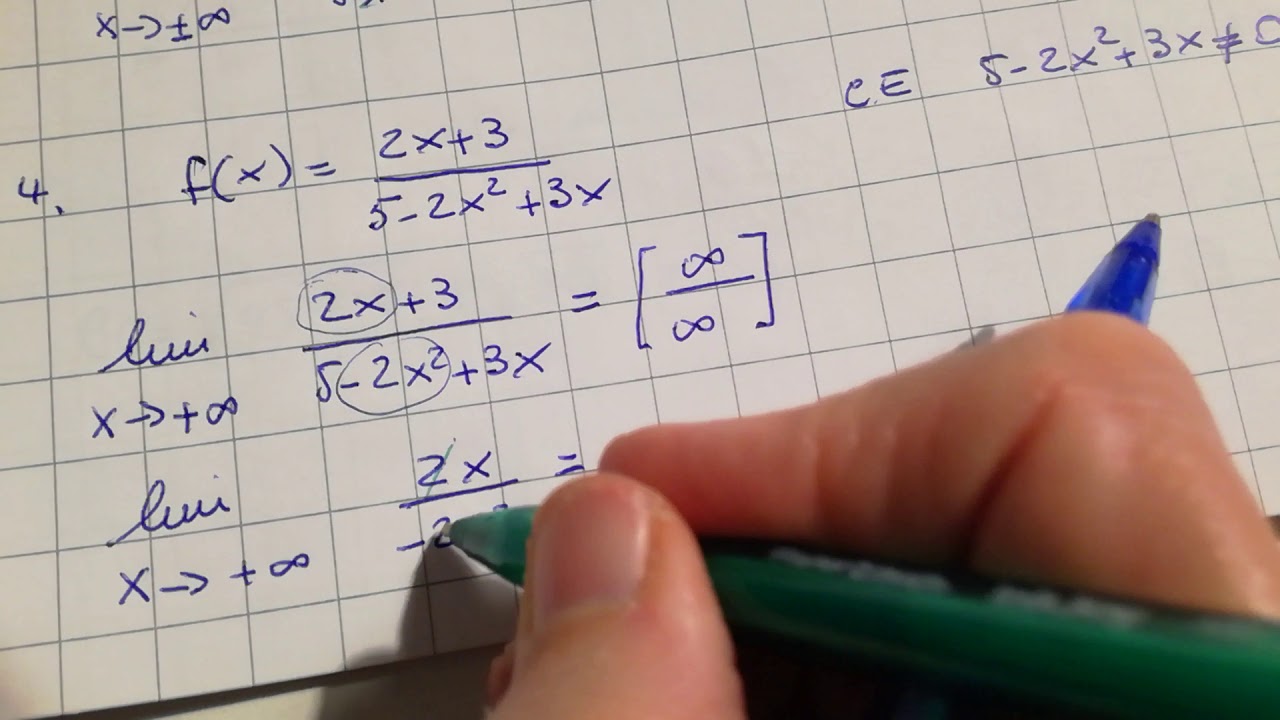 x→±∞
C.E 5-2x²+3x≠0
4. f(x) = (2x+3)/(5-2x²+3x)
lim x→+∞ (2x+3)/(5-2x²+3x) = [∞/∞]
lim x→+∞ 2x/-2 =